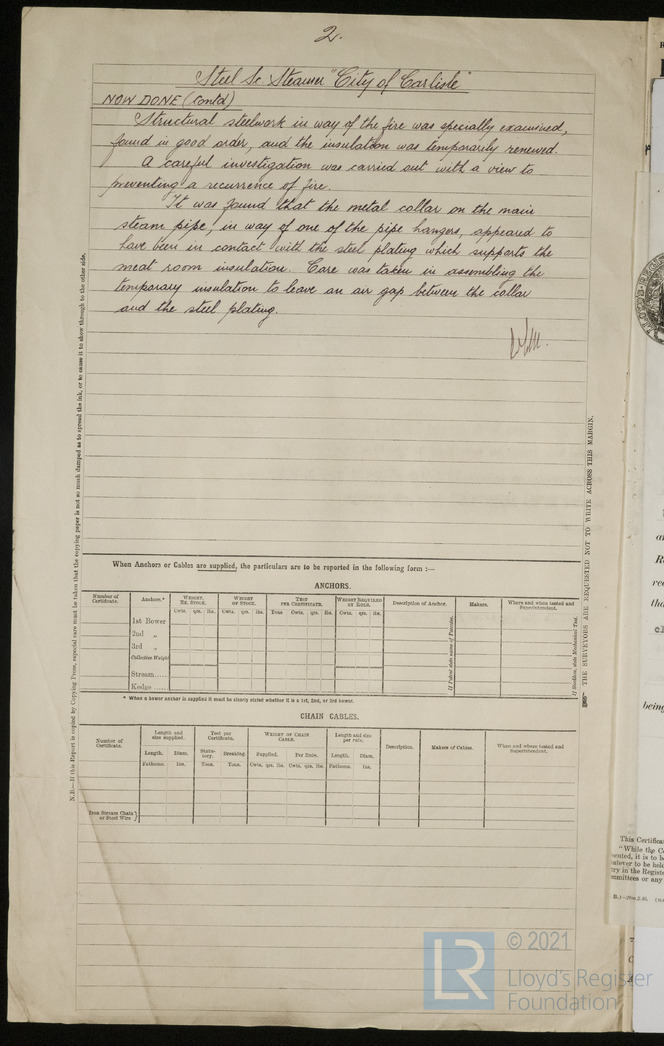 2.
Steel Sc Steamer "City of Carlisle"
NOW DONE (Contd)
Structural steelwork in way of the fire was specially examined,
found in good order, and the insulation was temporarily renewed.
A careful investigation was carried out with a view to
preventing a recurrence of fire.
It was found that the metal collar on the main
steam pipe, in way of one of the pipe hangers, appeared to
have been in contact with the steel plating which supports the
meat room insulation. Care was taken in assembling the
temporary insulation to leave an air gap between the collar
and the steel plating.
N.B.—If this Report is copied by Copying Press, especial care must be taken that the copying paper is not so much damped as to spread the ink, or to cause it to show through to the other side.
THE SURVEYORS ARE REQUESTED NOT TO WRITE ACROSS THIS MARGIN.
When Anchors or Cables are supplied, the particulars are to be reported in the following form :—
ANCHORS.
Number of Certificate. Anchors.* WEIGHT, EX. STOCK. WEIGHT OF STOCK. TEST PER CERTIFICATE. WEIGHT REQUIRED BY RULE. Description of Anchor. Makers. Where and when tested and Superintendent.
Cwts. qrs. lbs. Cwts. qrs. lbs. Tons Cwts. qrs. lbs. Cwts. qrs. lbs.
1st Bower
2nd „
3rd „
Collective Weight
Stream.....
Kedge.....
If Patent state name of Patentee.
* When a bower anchor is supplied it must be clearly stated whether it is a 1st, 2nd, or 3rd bower.
CHAIN CABLES.
Number of Certificate. Length and size supplied. Test per Certificate. WEIGHT OF CHAIN CABLE. Length and size per rule. Description. Makers of Cables. When and where tested and Superintendent.
Length. Diam. Statutory. Breaking. Supplied. Per Rule. Length. Diam.
Fathoms. Ins. Tons. Tons. Cwts. qrs. lbs. Cwts. qrs. lbs. Fathoms. Ins.
Iron Stream Chain or Steel Wire
This Certifica
"While the C
© 2021
LR
Lloyd's Register
Foundation